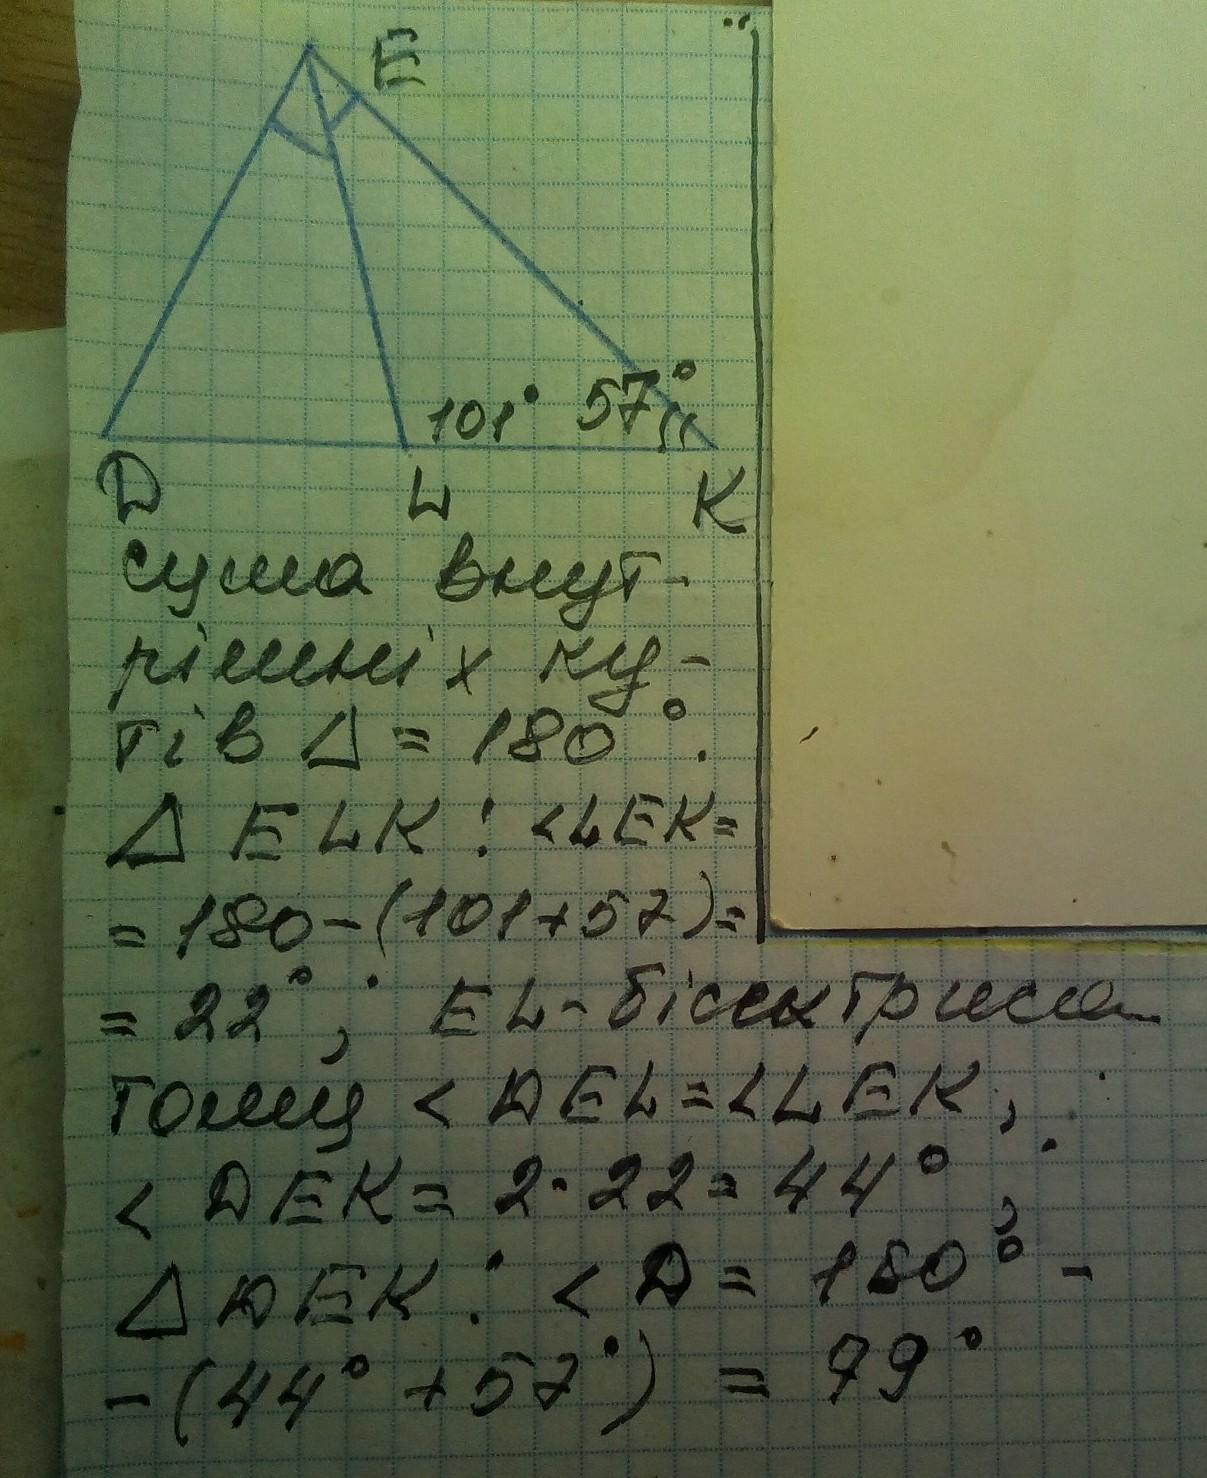 E
101° 57°
D L K
сума внут-
рішніх ку-
тів Δ = 180°.
Δ ELK : <LEK=
= 180-(101+57)=
= 22° ; EL-бісектриса
тому < DEL = <LEK ,
< DEK = 2·22 = 44° ;
Δ DEK : < D = 180° -
- (44° + 57°) = 79°